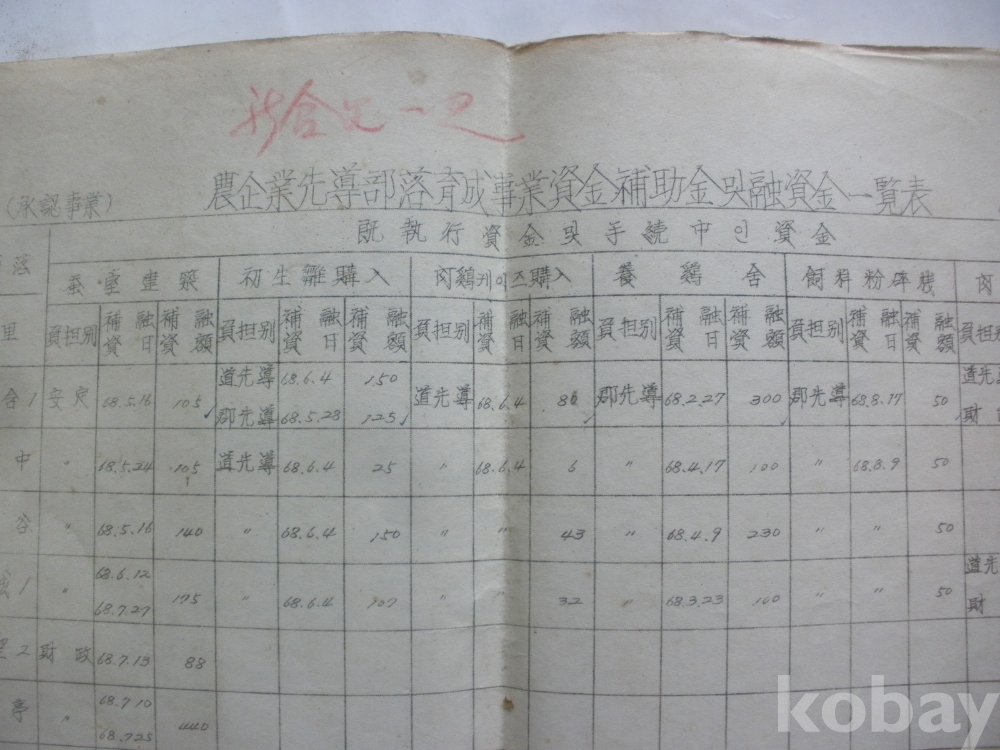 農企業先導部落育成事業資金補助金및融資金一覧表
(承認事業)
既執行資金및手続中인資金
蚕·室建築 初生雛購入 肉鷄케이즈購入 養鷄舍 飼料粉碎機 肉
里 負担別 補融資日 補融資額 負担別 補融資日 補融資額 負担別 補融資日 補融資額 負担別 補融資日 補融資額 負担別 補融資日 補融資額 負担別
道先導 68.6.4 150 道先
舍1 安定 68.5.16 105 道先導 68.6.4 86 郡先導 68.2.27 300 郡先導 68.8.17 50
郡先導 68.5.28 125 財
中 〃 68.5.24 105 道先導 68.6.4 25 〃 68.6.4 6 〃 68.4.17 100 〃 68.8.9 50
谷 〃 68.5.16 140 〃 68.6.4 150 〃 〃 43 〃 68.4.9 230 〃 〃 50
68.6.12 道先
1 〃 68.7.27 175 〃 68.6.4 107 〃 〃 32 〃 68.3.23 100 〃 〃 50 財
里2 財政 68.7.13 88
亭 〃 68.7.10
68.7.25 440
kobay